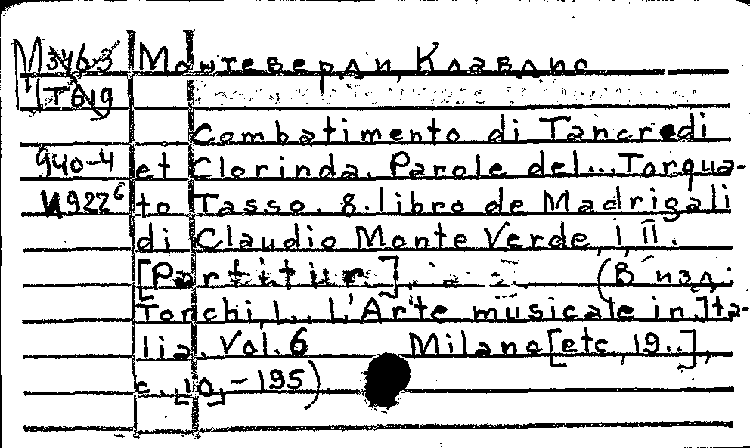 Монтеверди, Клавдио
Combatimento di Tancredi
940-4 et Clorinda. Parole del... Torqua-
И922⁶ to Tasso. 8. libro de Madrigali
di Claudio Monte Verde, I, II.
[Partitur]. (В изд.:
Torchi, L. L'Arte musicale in Ita-
lia. Vol. 6 Milano [etc, 19..],
c. -195)